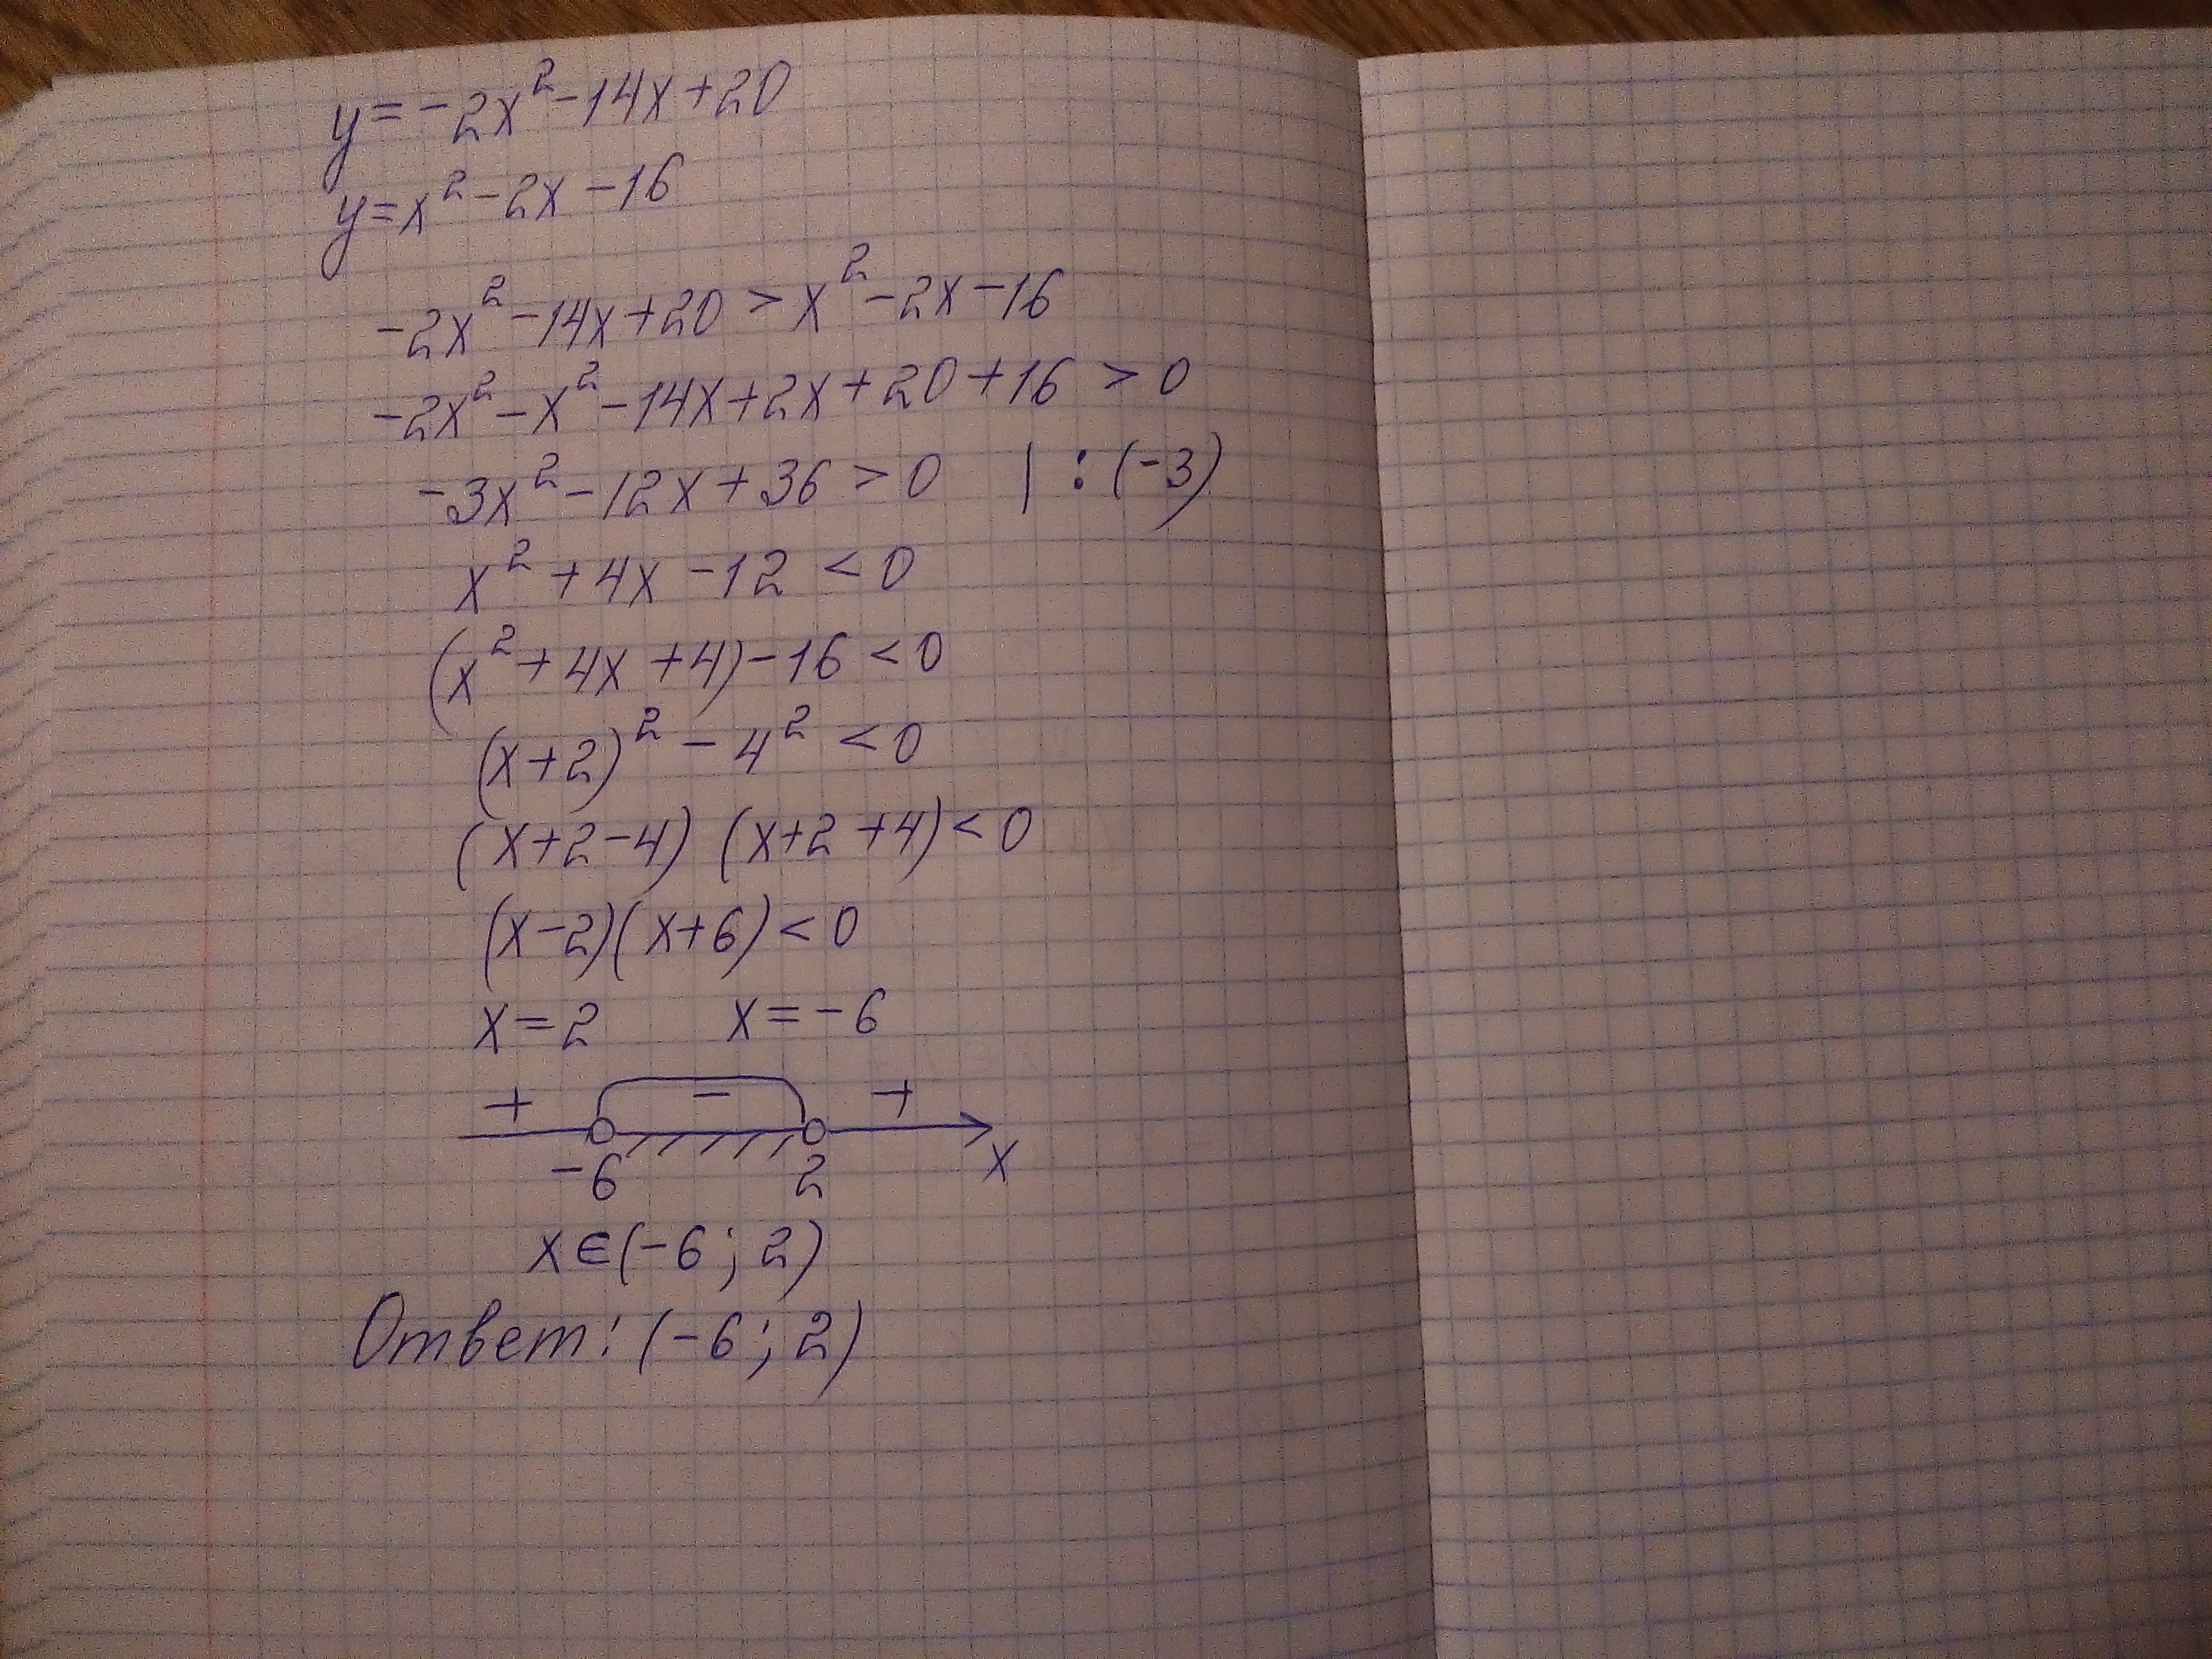 y=-2x²-14x+20
y=x²-2x-16
-2x²-14x+20>x²-2x-16
-2x²-x²-14x+2x+20+16>0
-3x²-12x+36>0 | :(-3)
x²+4x-12<0
(x²+4x+4)-16<0
(x+2)²-4²<0
(x+2-4)(x+2+4)<0
(x-2)(x+6)<0
x=2 x=-6
+ - +
-6 2 x
x∈(-6;2)
Ответ:(-6;2)